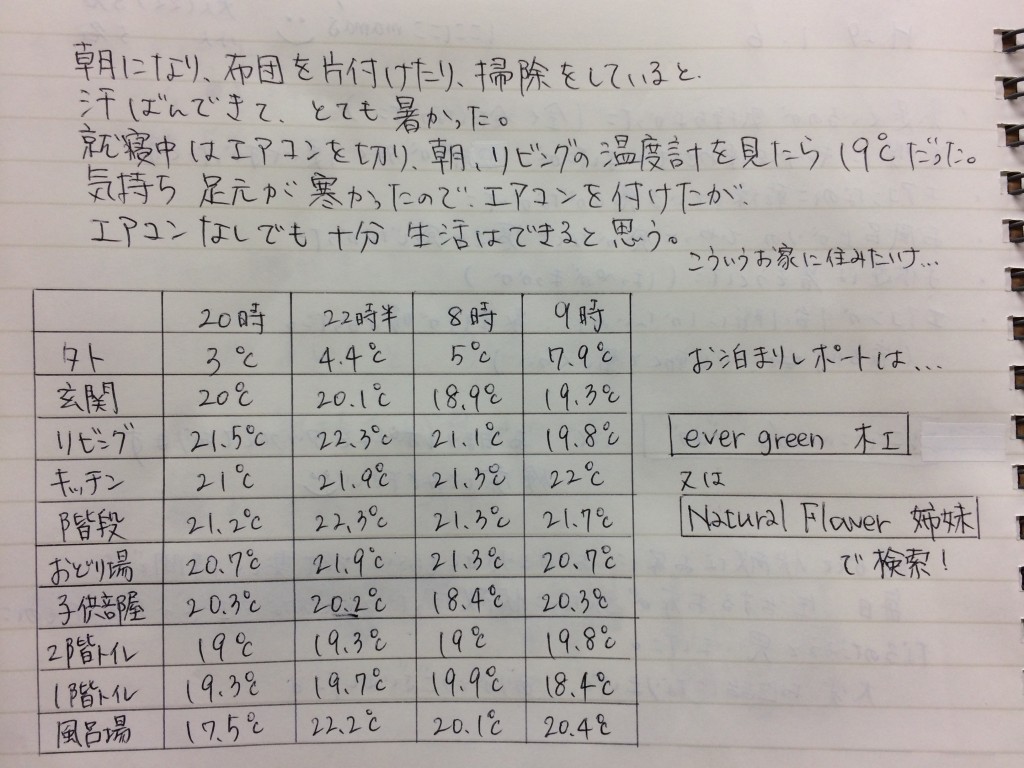 朝になり、布団を片付けたり、掃除をしていると、
汗ばんできて、とても暑かった。
就寝中はエアコンを切り、朝、リビングの温度計を見たら19℃だった。
気持ち 足元が寒かったので、エアコンを付けたが、
エアコンなしでも十分 生活はできると思う。
こういうお家に住みたいけ...
20時 22時半 8時 9時
外 3℃ 4.4℃ 5℃ 7.9℃
玄関 20℃ 20.1℃ 18.9℃ 19.3℃
リビング 21.5℃ 22.3℃ 21.1℃ 19.8℃
キッチン 21℃ 21.9℃ 21.3℃ 22℃
階段 21.2℃ 22.3℃ 21.3℃ 21.7℃
おどり場 20.7℃ 21.9℃ 21.3℃ 20.7℃
子供部屋 20.3℃ 20.2℃ 18.4℃ 20.3℃
2階トイレ 19℃ 19.3℃ 19℃ 19.8℃
1階トイレ 19.3℃ 19.7℃ 19.9℃ 18.4℃
風呂場 17.5℃ 22.2℃ 20.1℃ 20.4℃
お泊まりレポートは...
ever green 木工
又は
Natural Flower 姉妹
で検索!